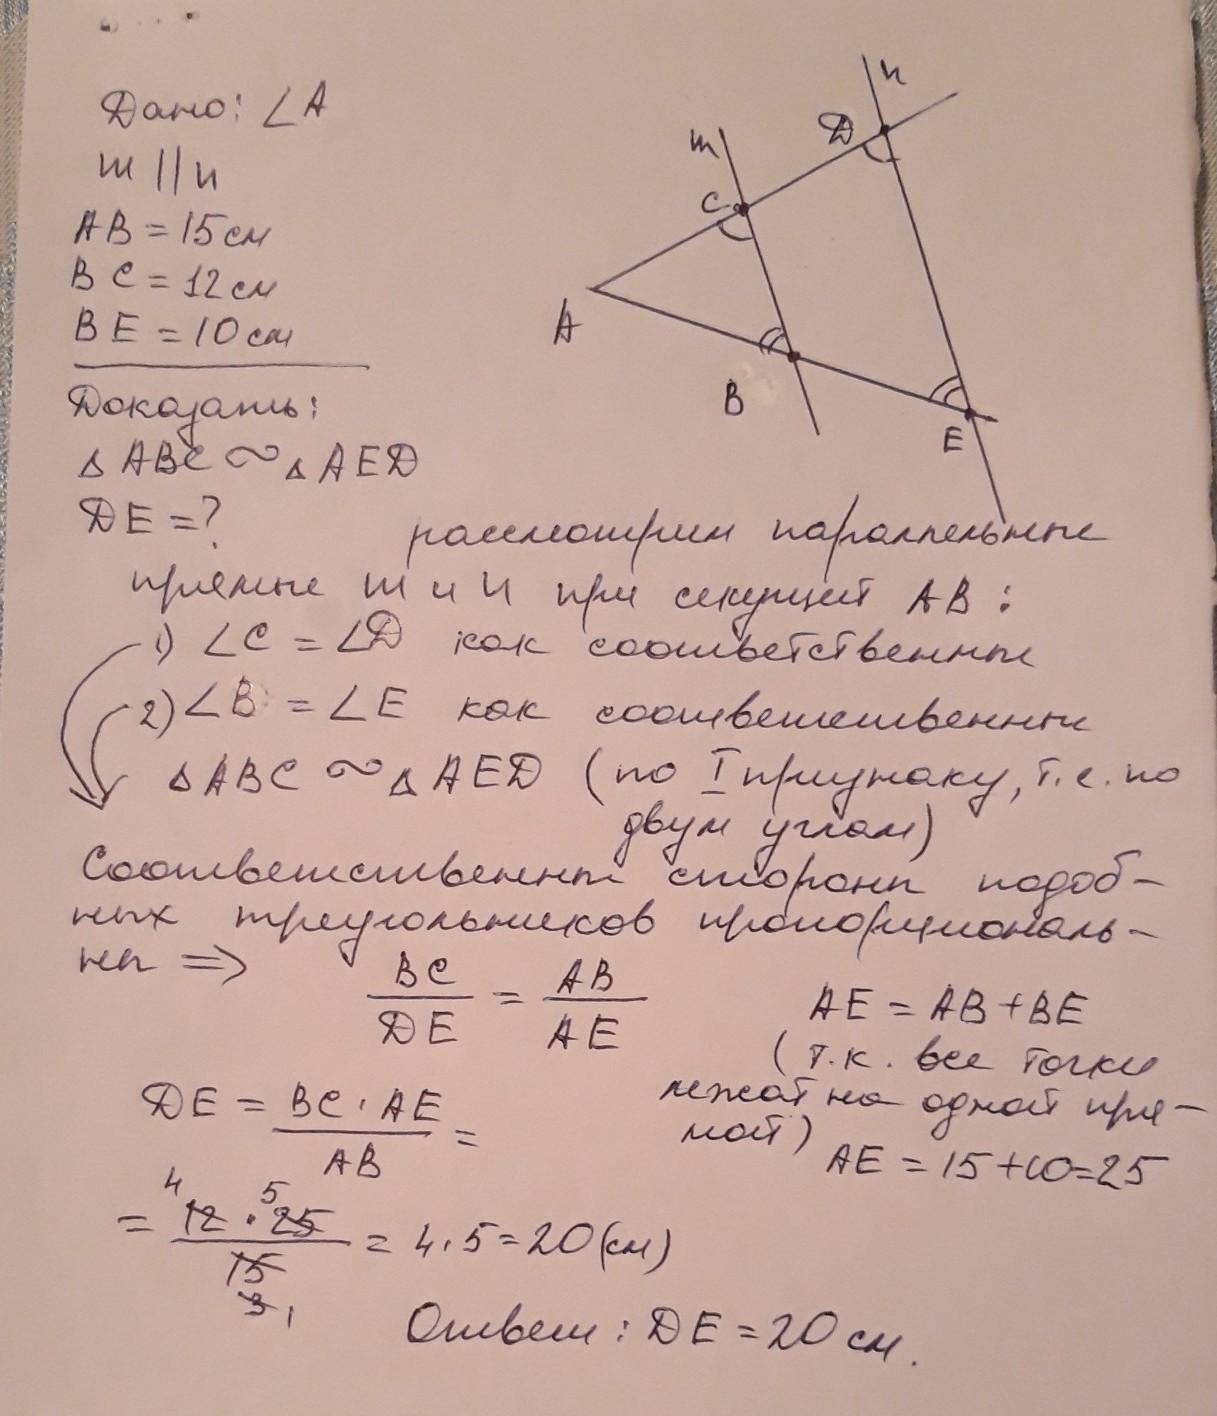 Дано: ∠A
m || n
AB = 15 см
BC = 12 см
BE = 10 см
Доказать:
△ ABC ∾ △ AED
DE = ?
m
n
D
C
A
B
E
рассмотрим параллельные
прямые m и n при секущей AB :
1) ∠C = ∠D как соответственные
2) ∠B = ∠E как соответственные
△ ABC ∾ △ AED (по I признаку, т.е. по
двум углам)
Соответственные стороны подоб-
ных треугольников пропорциональ-
ны ⇒
BC/DE = AB/AE
AE = AB + BE
(т.к. все точки
лежат на одной пря-
мой)
AE = 15 + 10 = 25
DE = BC · AE / AB =
4 5
= 12 · 25 / 15 = 4 · 5 = 20 (см)
3 1
Ответ : DE = 20 см.